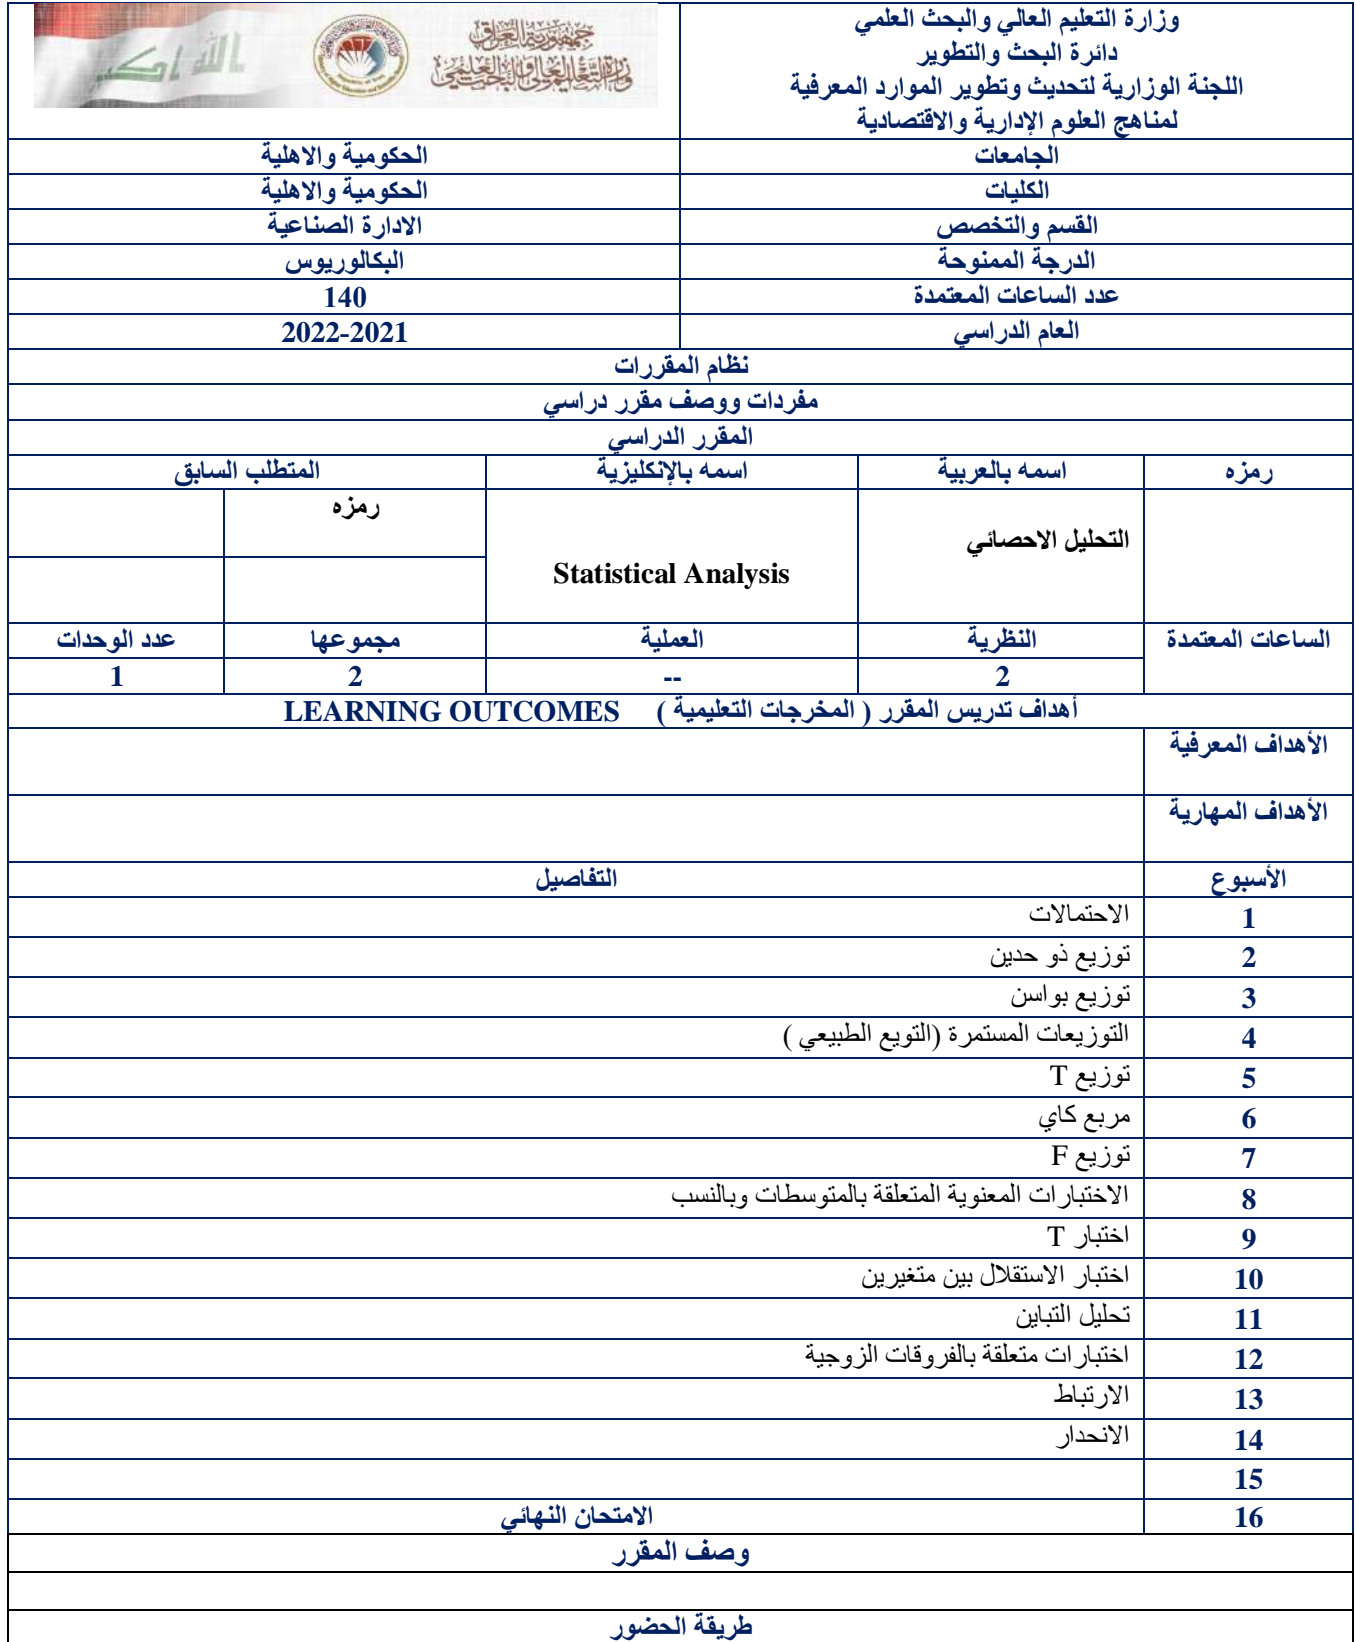 وزارة التعليم العالي والبحث العلمي
دائرة البحث والتطوير
اللجنة الوزارية لتحديث وتطوير الموارد المعرفية
لمناهج العلوم الإدارية والاقتصادية
جمهورية العراق
وزارة التعليم العالي والبحث العلمي
الله اكبر
الجامعات الحكومية والاهلية
الكليات الحكومية والاهلية
القسم والتخصص الادارة الصناعية
الدرجة الممنوحة البكالوريوس
عدد الساعات المعتمدة 140
العام الدراسي 2021-2022
نظام المقررات
مفردات ووصف مقرر دراسي
المقرر الدراسي
رمزه اسمه بالعربية اسمه بالإنكليزية المتطلب السابق
رمزه
التحليل الاحصائي
Statistical Analysis
الساعات المعتمدة النظرية العملية مجموعها عدد الوحدات
2 -- 2 1
أهداف تدريس المقرر ( المخرجات التعليمية ) LEARNING OUTCOMES
الأهداف المعرفية
الأهداف المهارية
الأسبوع التفاصيل
1 الاحتمالات
2 توزيع ذو حدين
3 توزيع بواسن
4 التوزيعات المستمرة (التويع الطبيعي )
5 توزيع T
6 مربع كاي
7 توزيع F
8 الاختبارات المعنوية المتعلقة بالمتوسطات وبالنسب
9 اختبار T
10 اختبار الاستقلال بين متغيرين
11 تحليل التباين
12 اختبارات متعلقة بالفروقات الزوجية
13 الارتباط
14 الانحدار
15
16 الامتحان النهائي
وصف المقرر
طريقة الحضور